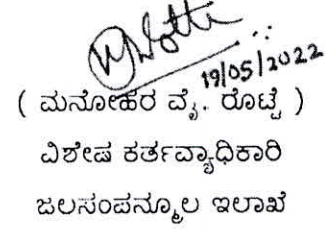 19/05/2022
( ಮನೋಹರ ವೈ. ರೊಟ್ಟಿ )
ವಿಶೇಷ ಕರ್ತವ್ಯಾಧಿಕಾರಿ
ಜಲಸಂಪನ್ಮೂಲ ಇಲಾಖೆ